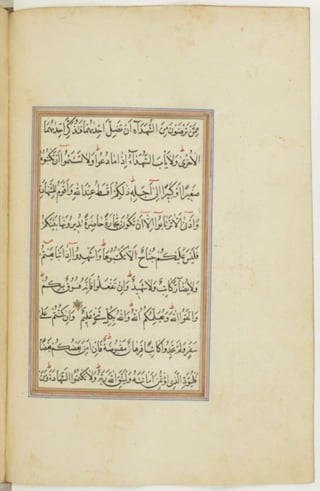 مِمَّنْ تَرْضَوْنَ مِنَ الشُّهَدَاءِ أَنْ تَضِلَّ إِحْدَاهُمَا فَتُذَكِّرَ إِحْدَاهُمَا
الْأُخْرَىٰ وَلَا يَأْبَ الشُّهَدَاءُ إِذَا مَا دُعُوا وَلَا تَسْـَٔمُوا أَنْ تَكْتُبُوهُ
صَغِيرًا أَوْ كَبِيرًا إِلَىٰ أَجَلِهِ ذَٰلِكُمْ أَقْسَطُ عِنْدَ اللَّهِ وَأَقْوَمُ لِلشَّهَادَةِ
وَأَدْنَىٰ أَلَّا تَرْتَابُوا إِلَّا أَنْ تَكُونَ تِجَارَةً حَاضِرَةً تُدِيرُونَهَا بَيْنَكُمْ
فَلَيْسَ عَلَيْكُمْ جُنَاحٌ أَلَّا تَكْتُبُوهَا وَأَشْهِدُوا إِذَا تَبَايَعْتُمْ
وَلَا يُضَارَّ كَاتِبٌ وَلَا شَهِيدٌ وَإِنْ تَفْعَلُوا فَإِنَّهُ فُسُوقٌ بِكُمْ
وَاتَّقُوا اللَّهَ وَيُعَلِّمُكُمُ اللَّهُ وَاللَّهُ بِكُلِّ شَيْءٍ عَلِيمٌ وَإِنْ كُنْتُمْ عَلَىٰ
سَفَرٍ وَلَمْ تَجِدُوا كَاتِبًا فَرِهَانٌ مَقْبُوضَةٌ فَإِنْ أَمِنَ بَعْضُكُمْ بَعْضًا
فَلْيُؤَدِّ الَّذِي اؤْتُمِنَ أَمَانَتَهُ وَلْيَتَّقِ اللَّهَ رَبَّهُ وَلَا تَكْتُمُوا الشَّهَادَةَ وَمَنْ